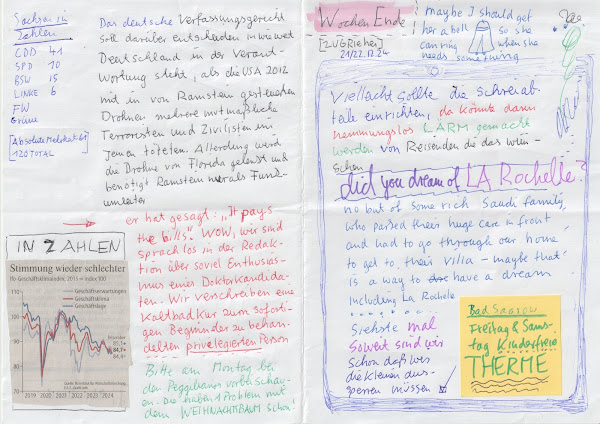 Sachsen in
Zahlen
CDD 41
SPD 10
BSW 15
LINKE 6
FW
Grüne
[Absolute Mehrkeit 61
120 TOTAL]
Das deutsche Verfassungsgericht
soll darüber entscheiden in wie weit
Deutschland in der Verant-
wortung steht, als die USA 2012
mit in von Ramstein gesteuerten
Drohnen mehrere mutmaßliche
Terroristen und Zivilisten im
Jemen töteten. Allerding wird
die Drohne von Florida gelenkt und
benötigt Ramstein nur als Funk-
umleiter
er hat gesagt: „It pays
the bills". WOW, wir sind
sprachlos in der Redak-
tion über soviel Enthusias-
mus einer Doktorkandida-
ten. Wir verschreiben eine
Kaltbad Kur zum sofosti-
gen Beginn der zu behan-
delnden privilegierten Person
Bitte am Montag bei
den Peggebauer vorbeischau-
en. Die haben 1 Problem mit
dem WEIHNACHTBAUM schon!
IN ZAHLEN
Stimmung wieder schlechter
Ifo-Geschäftsklimaindex, 2015 = Index 100
Geschäftserwartungen
Geschäftsklima
Geschäftslage
110
100
90
80
70
2019 2020 2021 2022 2023 2024
Wochen Ende
[ZUG Riehen]
21/22.12.24
maybe I should get
her a bell so she
can ring when she
needs something
Vielleicht sollte die Schreiab-
teile einrichten, da könnte dann
hemmungslos LÄRM gemacht
werden von Reisenden die das wün-
schen
did you dream of LA Rochelle?
no but of some rich Saudi family,
who parked their huge care in front
and had to go through our home
to get to their Villa - maybe that
is a way to have a dream
including La Rochele
Siehste mal
Soweit sind wir
schon daß wir
die kleinen aus-
sperren müssen
Bad Saarow
Freitag & Sams-
tag Kinderfreie
THERME